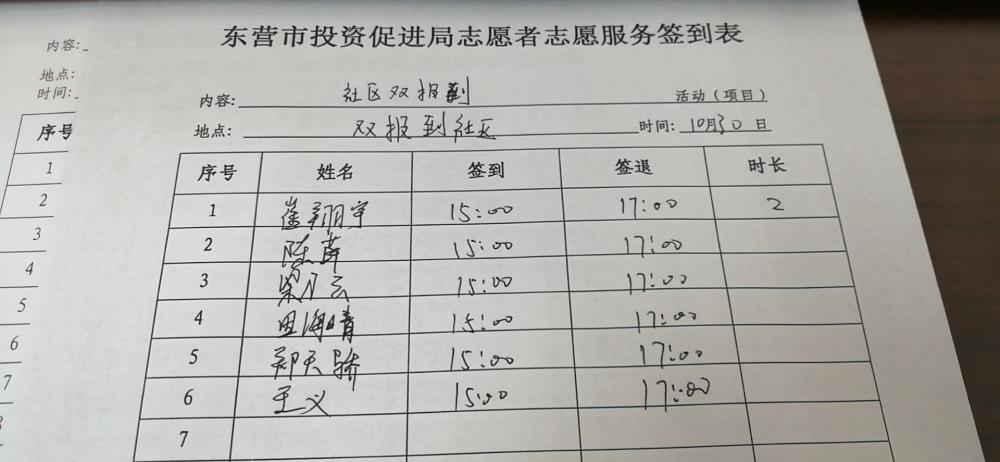 东营市投资促进局志愿者志愿服务签到表
内容: 社区双报到 活动（项目）
地点: 双报到社区 时间: 10月30日
序号 姓名 签到 签退 时长
1 崔翔宇 15:00 17:00 2
2 陈萍 15:00 17:00
3 梁 云 15:00 17:00
4 田海晴 15:00 17:00
5 郑天骄 15:00 17:00
6 王义 15:00 17:00
7
内容:
地点:
时间:
序号
1
2
3
4
5
6
7